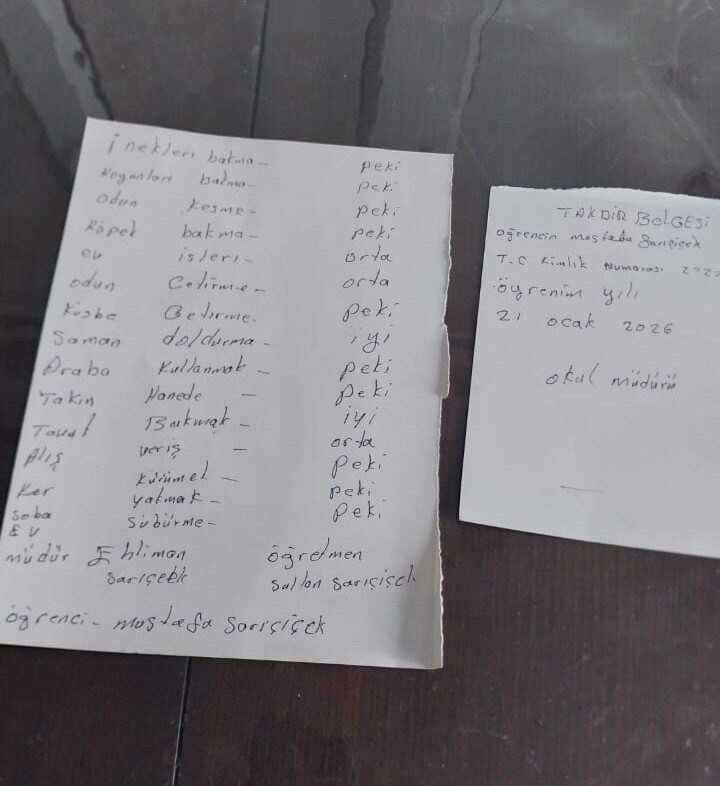 İnekleri bakma - peki
Koyunları bakma - peki
odun kesme - peki
Köpek bakma - peki
ev işleri - orta
odun Getirme - orta
Küsbe Getirme - peki
Saman doldurma - iyi
Araba Kullanmak - peki
Takın Hanede - peki
Tavuk Bakmak - iyi
Alış veriş - orta
Kar kürümek - peki
Soba yakmak - peki
EV Sübürme - peki
müdür Ehliman öğretmen
Sarıçeek Sultan Sarıçiçek
öğrenci - mustafa Sarıçiçek
TAKDİR BELGESİ
Öğrencin mustafa Sarıçiçek
T.C Kimlik numarası 2727
öyrenim yılı
21 ocak 2026
okul müdürü